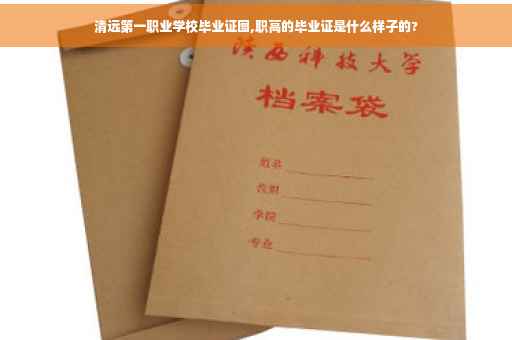 清远第一职业学校毕业证图,职高的毕业证是什么样子的?
陕西科技大学
档案袋
学院
专业